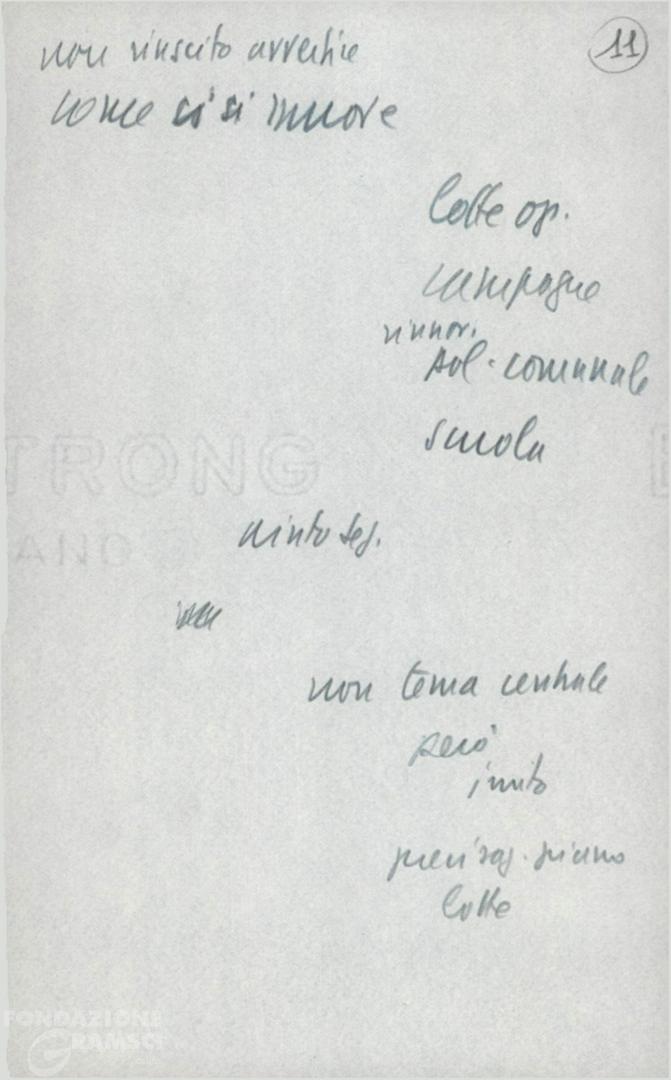 11
non riuscito avvertire
come ci si muove
Lotte op.
campagne
rinnov.
pol. comunale
scuola
aiuto seg.
non tema centrale
però
invito
piano
lotte
STRONG
AND
FONDAZIONE
GRAMSCI